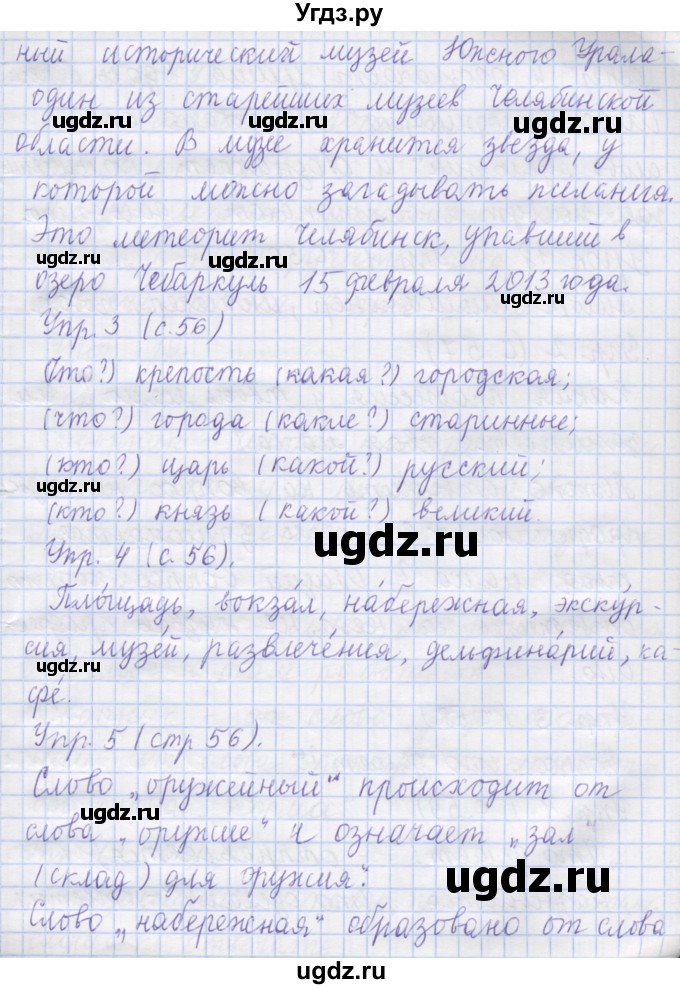 Угдз.ру
ный исторический музей Южного Урала-
один из старейших музеев Челябинской
ugdz.ru ugdz.ru
области. В музее хранится звезда, у
которой можно загадывать желания.
Это метеорит Челябинск, упавший в
ugdz.ru
озеро Чебаркуль 15 февраля 2013 года.
ugdz.ru
Упр. 3 (с. 56)
(что?) крепость (какая?) городская;
ugdz.ru
(что?) города (какие?) старинные;
(кто?) царь (какой?) русский;
ugdz.ru
(кто?) князь (какой?) великий.
ugdz.ru
Упр. 4 (с. 56).
Пло́щадь, вокза́л, на́бережная, экску́р-
сия, музе́й, развлече́ния, дельфина́рий, ка-
ugdz.ru
фе́.
ugdz.ru
Упр. 5 (стр 56).
Слово „оружейный“ происходит от
ugdz.ru
слова „оружие“ и означает „зал
(склад) для оружия“.
ugdz.ru
Слово „набережная“ образовано от слова
ugdz.ru
ugdz.ru